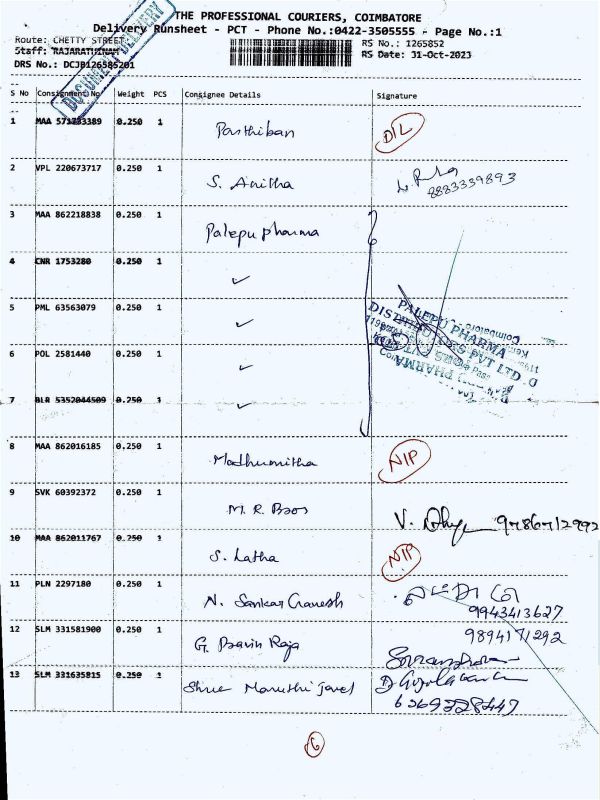 THE PROFESSIONAL COURIERS, COIMBATORE
Delivery Runsheet - PCT - Phone No.:0422-3505555 - Page No.:1
Route: CHETTY STREET
RS No.: 1265852
Staff: RAJARATHINAM
RS Date: 31-Oct-2023
DRS No.: DCJB126585201
DOCUMENT DELIVERY
S No Consignment No Weight PCS Consignee Details Signature
1 MAA 571733389 0.250 1 Parthiban D/L
2 VPL 220673717 0.250 1 S. Anitha
8883339893
3 MAA 862218838 0.250 1 Palepu pharma
4 CNR 1753280 0.250 1 ✓
5 PML 63563079 0.250 1 ✓
PALEPU PHARMA
DISTRIBUTORS PVT LTD
Coimbatore
6 POL 2581440 0.250 1 ✓
7 BLR 5352044509 0.250 1 ✓
8 MAA 862016185 0.250 1 Madhumitha NIP
9 SVK 60392372 0.250 1 M. R. Bros
9786712992
10 MAA 862011767 0.250 1 S. Latha NIP
11 PLN 2297180 0.250 1 N. Sankar Ganesh
9943413627
12 SLM 331581900 0.250 1 G. Pravin Raja 9894171292
13 SLM 331635815 0.250 1 Shree Maruthi
6369328447
6